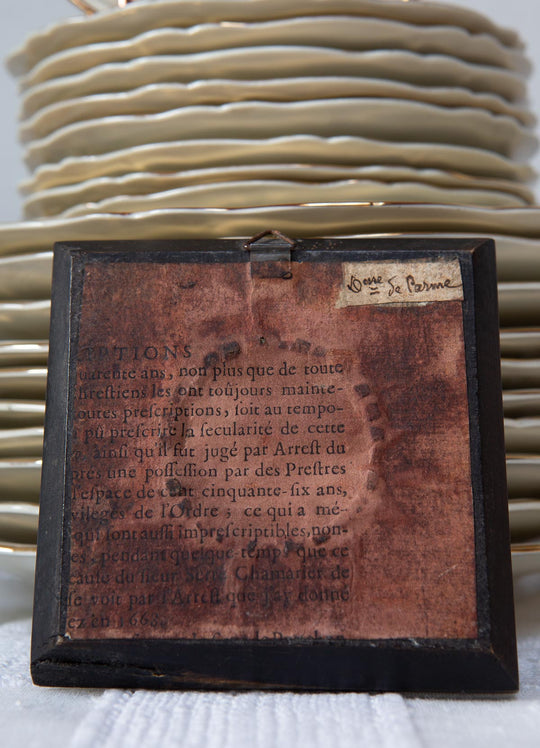 Dsse de Parme
EPTIONS
uarente ans, non plus que de toute
hrestiens les ont toûjours mainte-
outes prescriptions, soit au tempo-
r pû prescrire la secularité de cette
ainsi qu'il fut jugé par Arrest du
pres une possession par des Prestres
l'espace de cent cinquante-six ans,
vileges de l'Ordre ; ce qui a mé-
qui sont aussi imprescriptibles, non-
es, pendant quelque temps que ce
cause du sieur Chamarier de
se voit par l'Arrest que j'ay donné
ez en